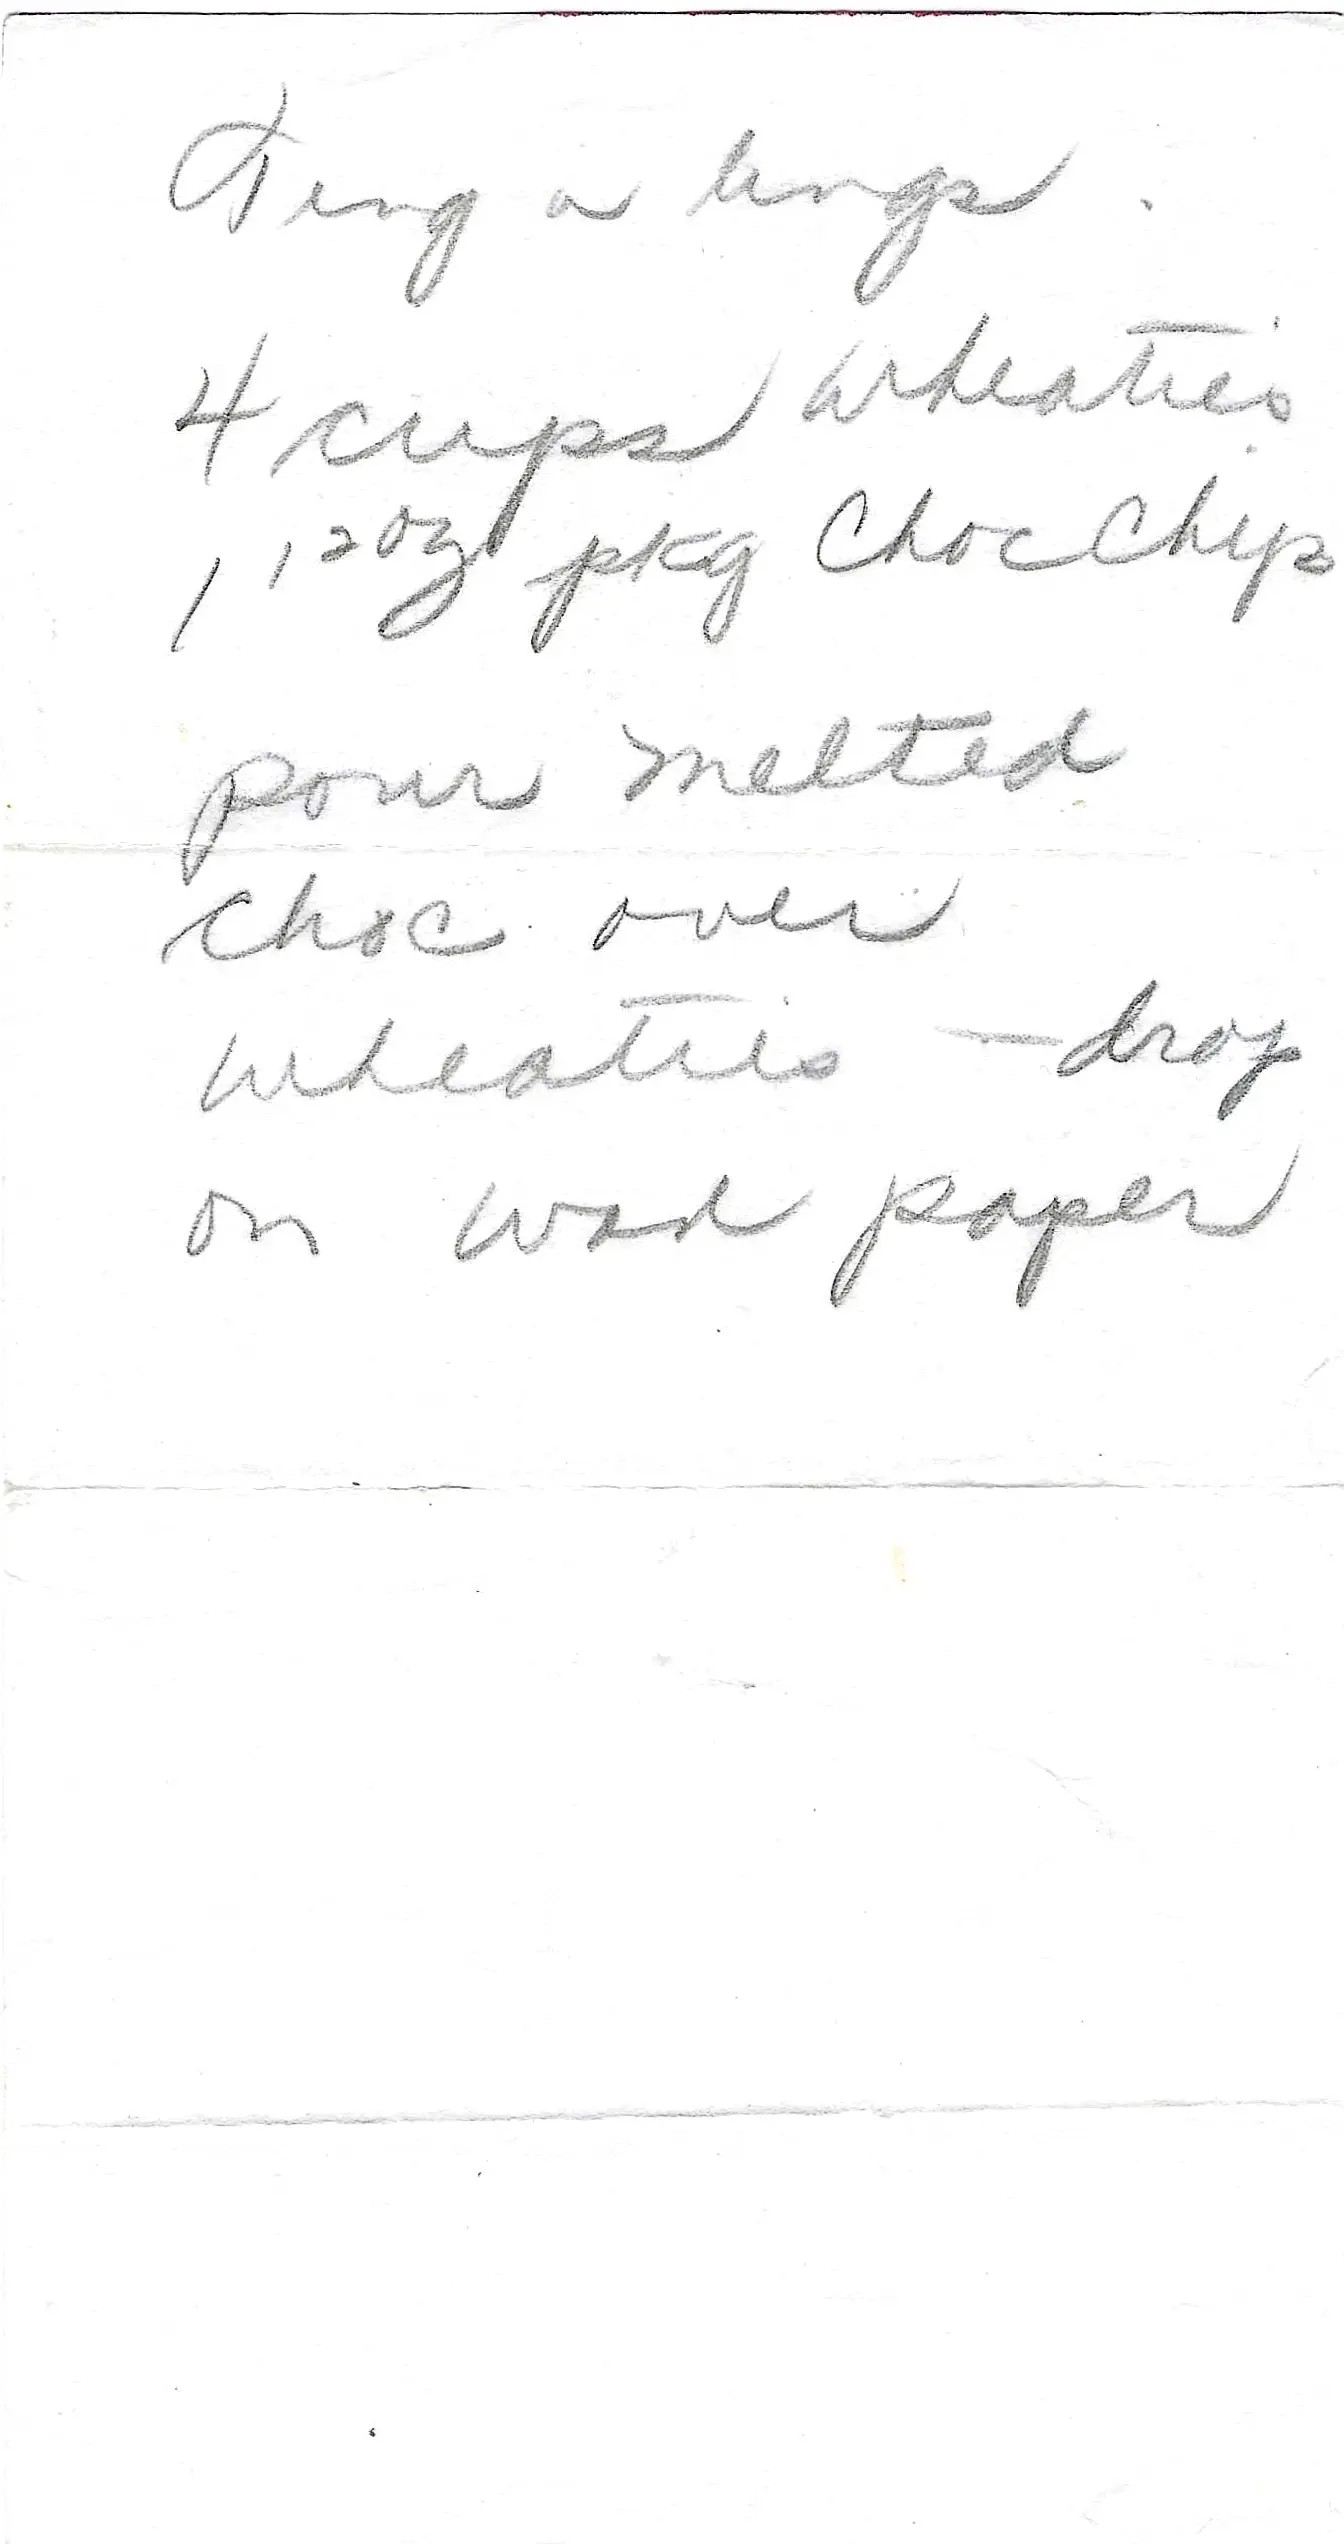 Ting a lings.
4 cups Wheaties
1 12 oz pkg Choc Chips
pour melted
choc over
wheaties - drop
on wax paper